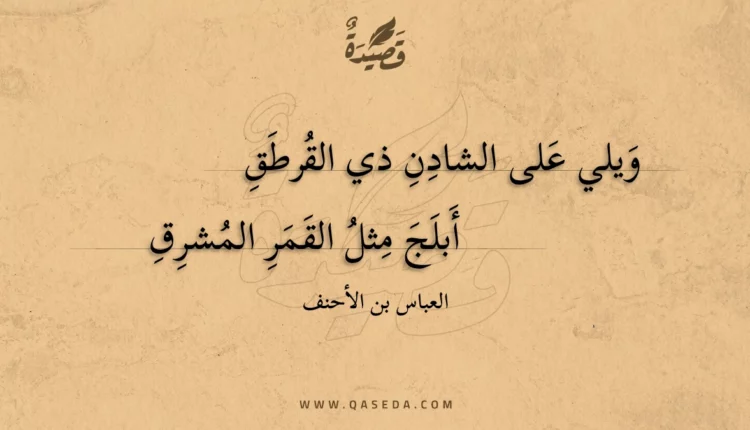 قَصِيْدَةٌ
وَيلي عَلى الشادِنِ ذي القُرطَقِ
أَبلَجَ مِثلُ القَمَرِ المُشرِقِ
العباس بن الأحنف
WWW.QASEDA.COM